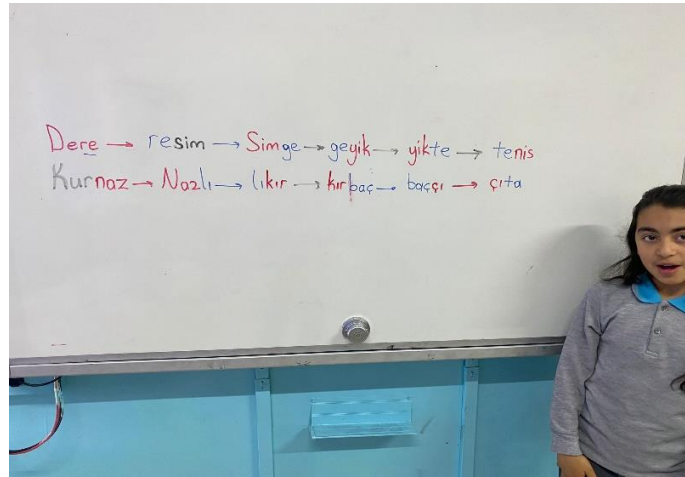 Dere → resim → Simge → geyik → yikte → tenis
Kurnaz → Nazlı → lıkır → kırbaç → baççı → çıta